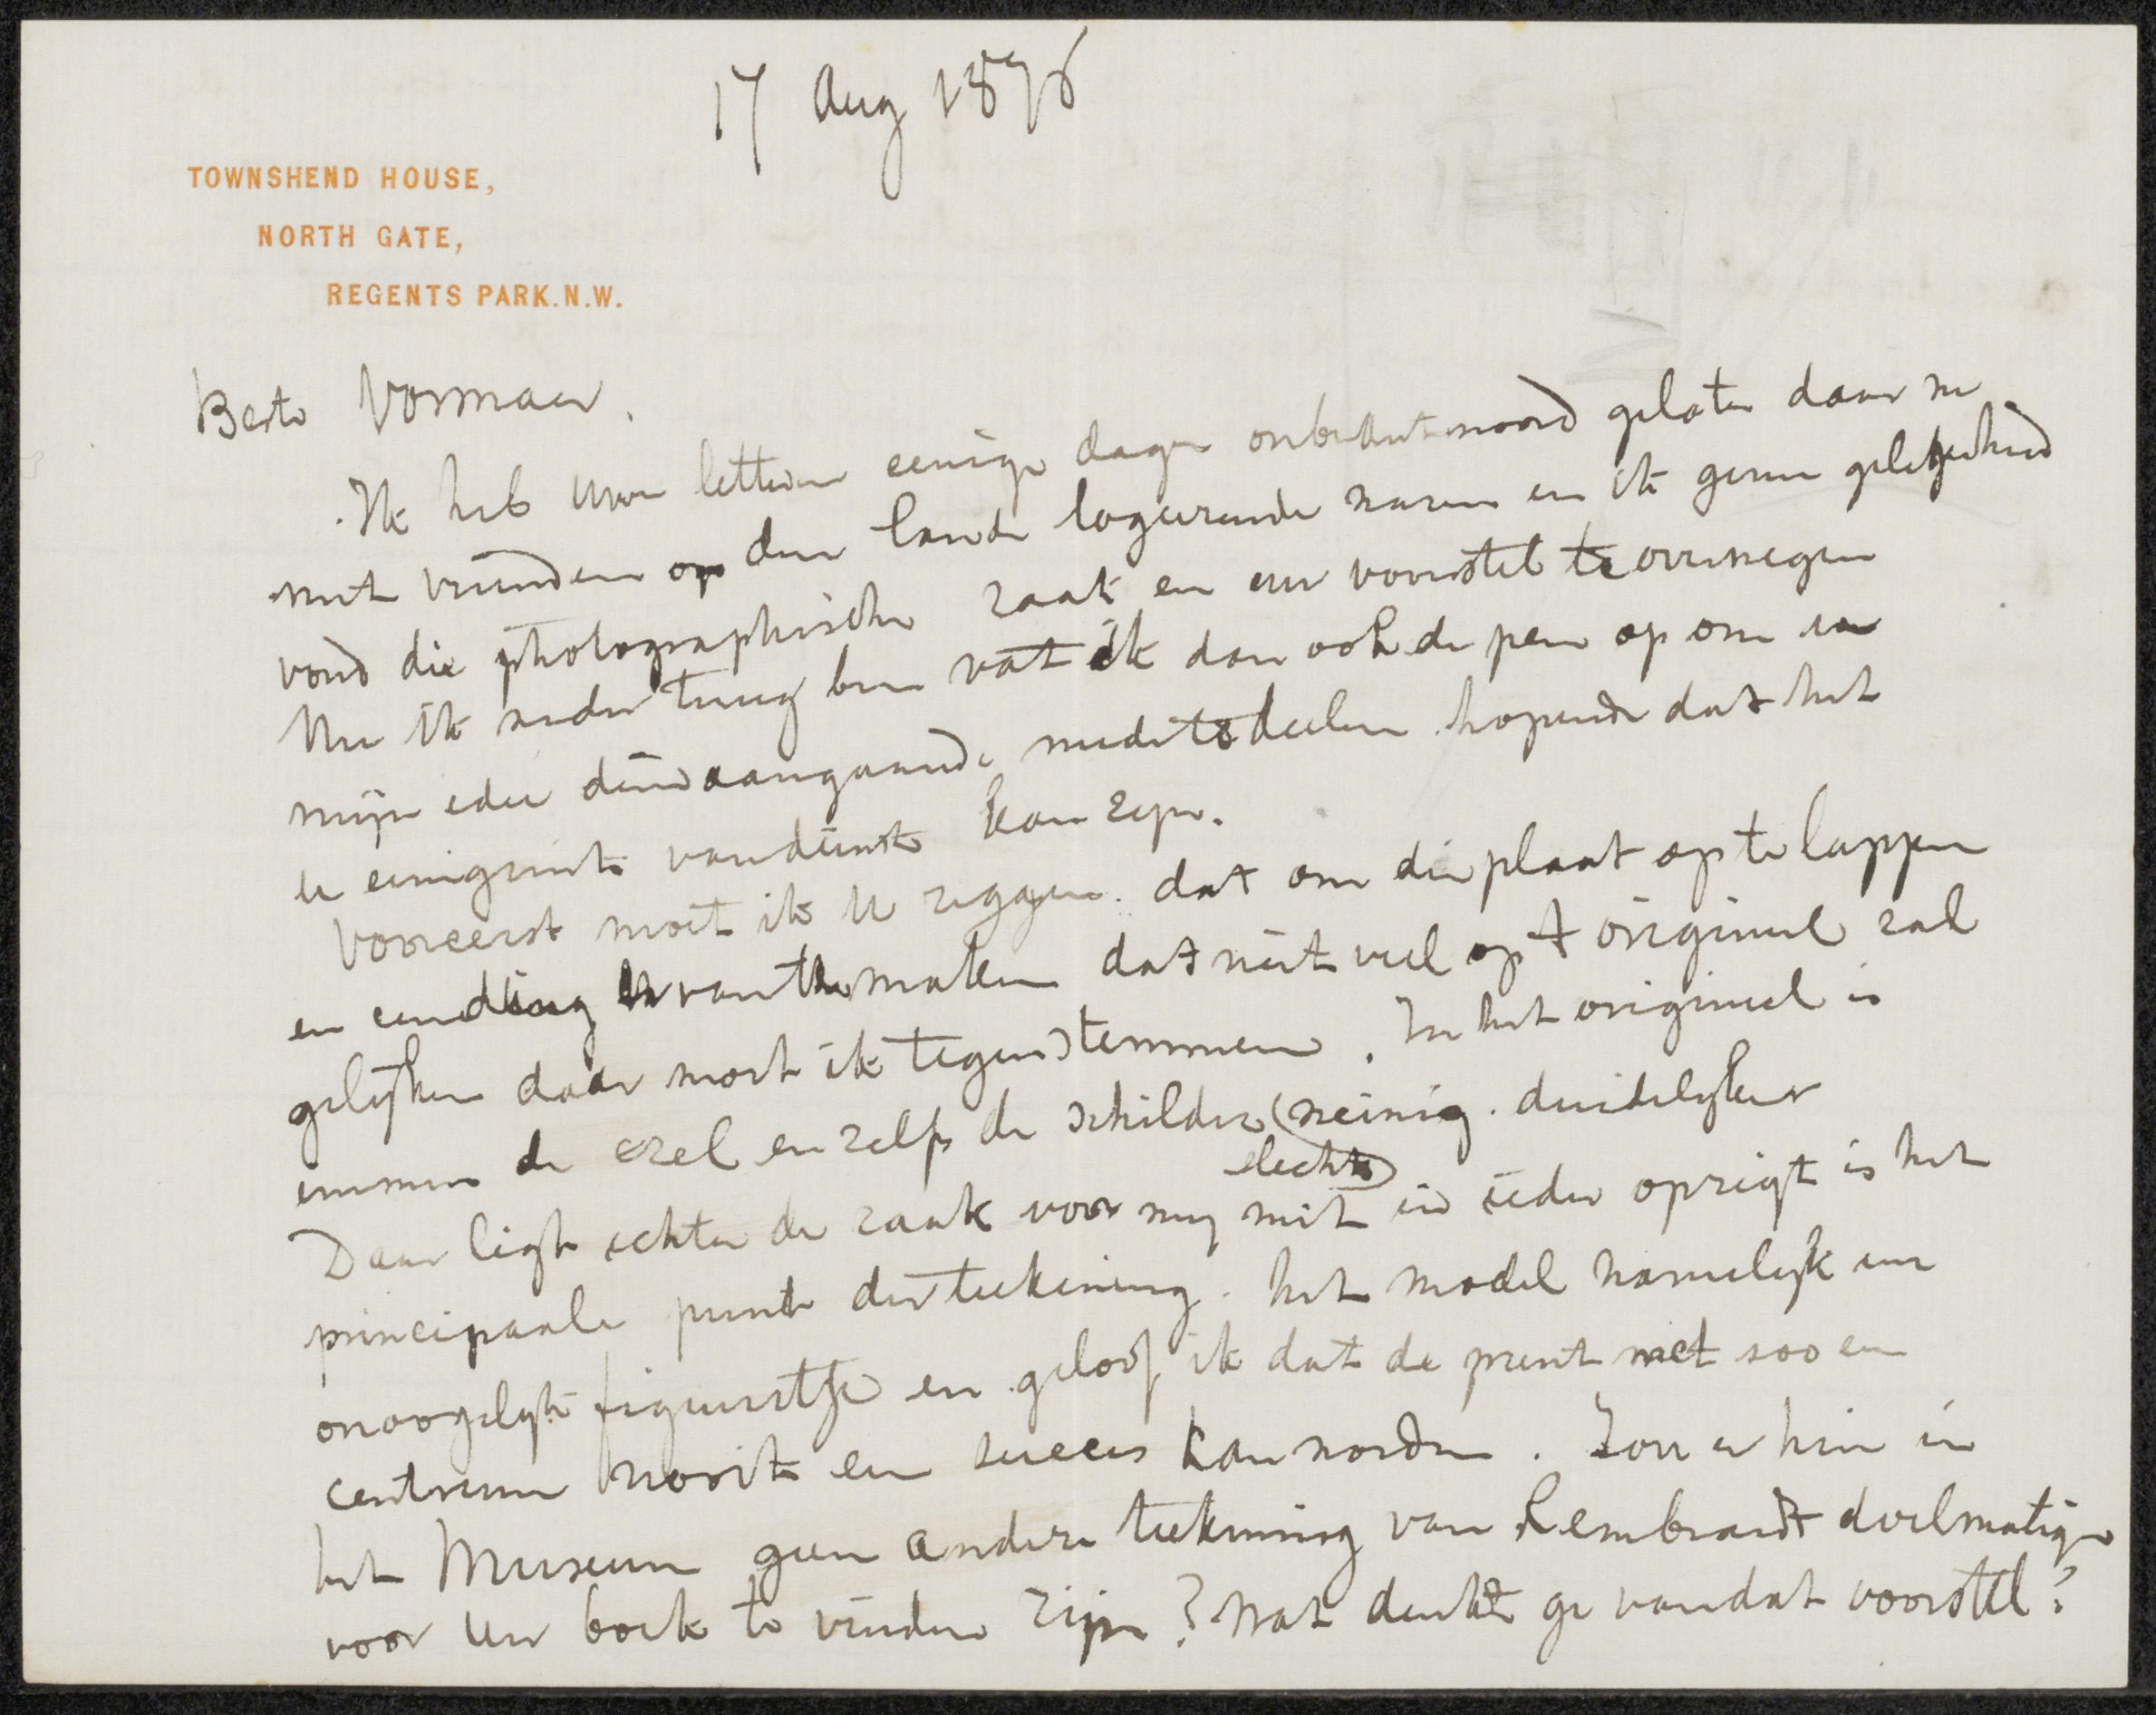 17 Aug 1876
TOWNSHEND HOUSE,
NORTH GATE,
REGENTS PARK.N.W.
Beste Vosmaer.
Ik heb uwe letteren eenige dagen onbeantwoord gelaten daar we
met vrienden op den lande logeerende waren en ik geene gelegenheid
vond die photographische zaak en uw voorstel te overwegen
Nu ik weder terug ben vat ik dan ook de pen op om u
mijn idee dienaangaande mede te deelen hopende dat het
u eenigzints van dienst kan zijn.
Vooreerst moet ik U zeggen dat om die plaat op te lappen
en een ding er van te maken dat niet veel op t origineel zal
gelijken daar moet ik tegen stemmen. In het origineel is
immers de ezel en zelfs de schilder weinig duidelijker
slechts
Daar ligt echter de zaak voor my niet in ieder opzigt is het
principaale punt der teekening. het model namelijk een
onoogelijk figuurtje en geloof ik dat de prent met zoo een
centrum nooit een succes kan worden. Zou er hier in
het Museum geen andere teekening van Rembrandt doelmatig
voor Uw boek te vinden zijn? Wat denkt ge van dat voorstel?